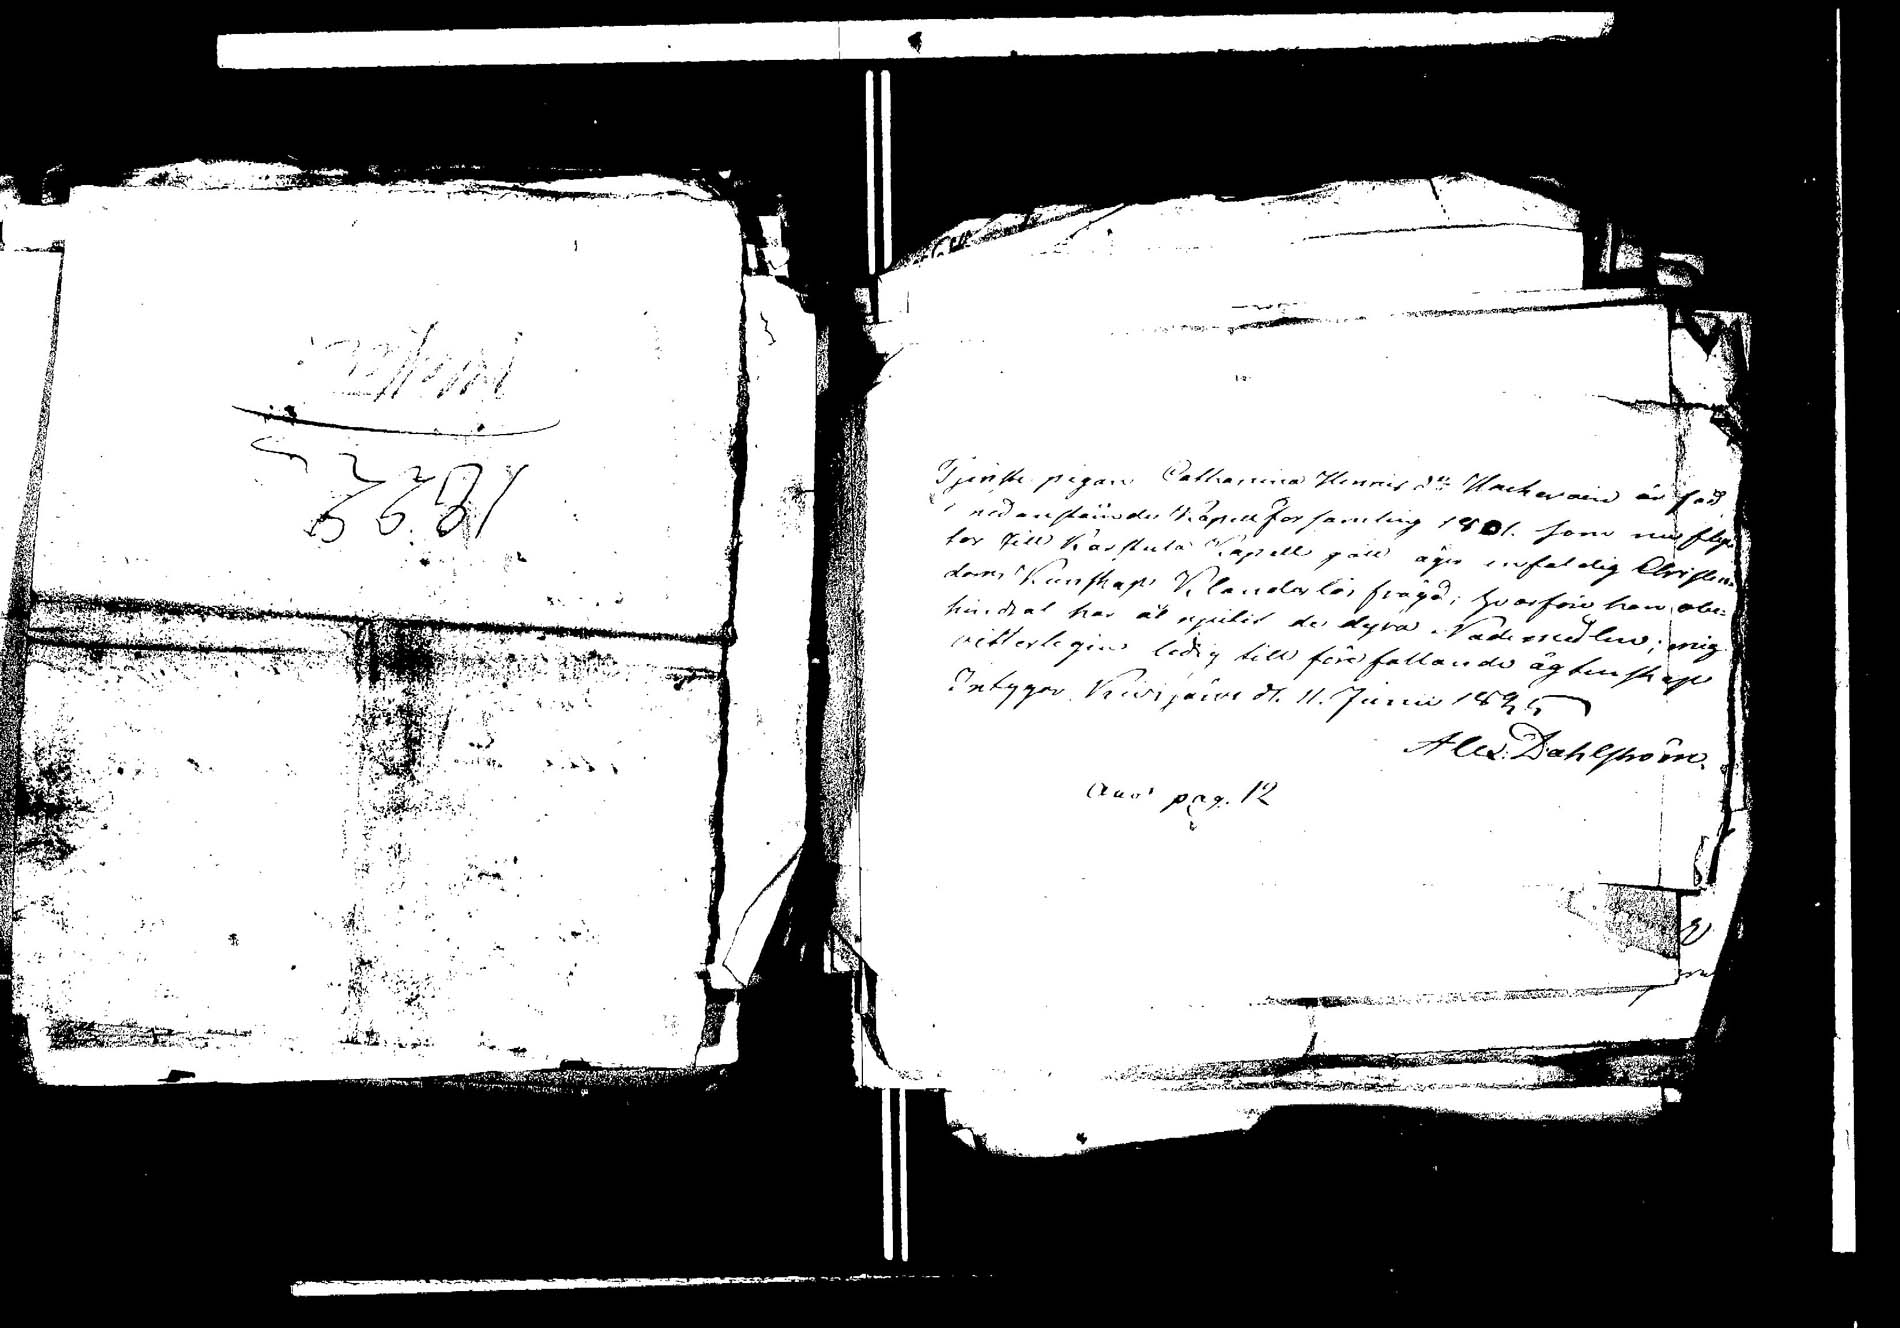 1822
Tjenste pigan Catharina Henrics dr Hackarain är född
i nedanstående Kapell församling 1801. som nu flyt
tar till Karstula Kapell gäll äger enfaldig Christen
doms Kunskap Klanderlös frägd; hvarföre hon obe-
hindrat har åt njutit de dyra Nademedlen; mig
vitterligen ledig till före fallande ägtenskap
Intygar Kivijärvi d. 11. Junii 182
Alex. Dahlström.
pag. 12